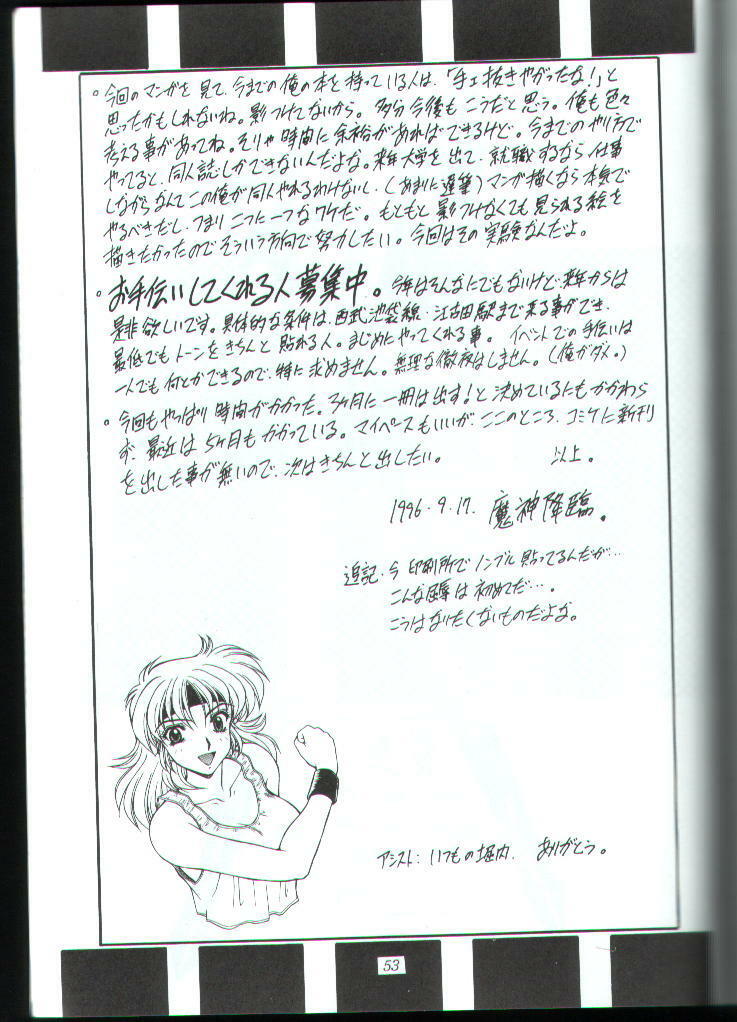 。今回のマンガを見て、今までの俺の本を持っている人は、「手ェ抜きやがったな!」と
思ったかもしれないね。影つけてないから。多分今後もこうだと思う。俺も色々
考える事があってね。そりゃ時間に余裕があればできるけど。今までのやり方で
やってると、同人誌しかできないんだよな。来年大学を出て、就職するなら仕事
しながらなんてこの俺が同人やれるわけないし、(あまりに遅筆)マンガ描くなら本気で
やるべきだし、つまり二つに一つなワケだ。もともと影つけなくても見られる絵を
描きたかったのでそういう方向で努力したい。今回はその実験なんだよ。
。お手伝いしてくれる人募集中。今年はそんなにでもないけど、来年からは
是非欲しいです。具体的な条件は、西武池袋線・江古田駅まで来る事ができ、
最低でもトーンをきちんと貼れる人。まじめにやってくれる事。イベントでの手伝いは
一人でも何とかできるので、特に求めません。無理な徹夜はしません。(俺がダメ。)
。今回もやっぱり時間がかかった。3ヶ月に一冊は出す!と決めているにもかかわら
ず、最近は5ヶ月もかかっている。マイペースもいいが、ここのところ、コミケに新刊
を出した事が無いので、次はきちんと出したい。 以上。
1996.9.17. 魔神降臨。
追記.今印刷所でノンブル貼ってるんだが…
こんな屈辱は初めてだ…。
こうはなりたくないものだよな。
アシスト:いつもの堀内. ありがとう。
53